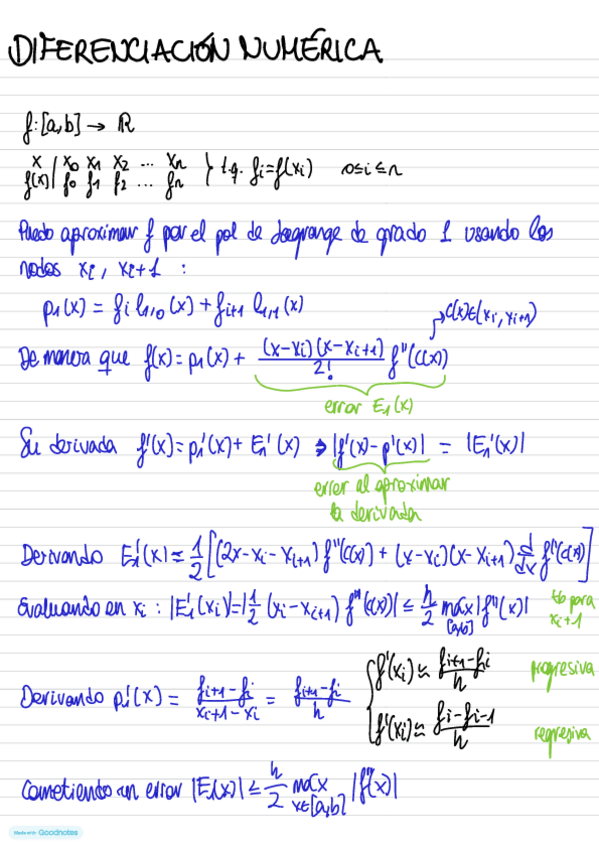 DIFERENCIACIÓN NUMÉRICA
f: [a,b] → ℝ
x | x0 x1 x2 ... xn
f(x) | f0 f1 f2 ... fn } t.q. fi = f(xi) 0≤i≤n
Puedo aproximar f por el pol de Lagrange de grado 1 usando los
nodos xi, xi+1 :
p1(x) = fi l1,0(x) + fi+1 l1,1(x)
→ c(x)∈(xi, xi+1)
De manera que f(x) = p1(x) + (x-xi)(x-xi+1)/2! f''(c(x))
error E1(x)
Su derivada f'(x) = p1'(x) + E1'(x) → |f'(x) - p'(x)| = |E1'(x)|
error al aproximar
la derivada
Derivando E1'(x) = 1/2 [(2x-xi-xi+1) f''(c(x)) + (x-xi)(x-xi+1) d/dx f''(c(x))]
Evaluando en xi : |E1'(xi)| = |1/2 (xi-xi+1) f''(c(x))| ≤ h/2 máx[a,b] |f''(x)| para
xi+1
Derivando p1'(x) = (fi+1 - fi)/(xi+1 - xi) = (fi+1 - fi)/h
{ f'(xi) ≈ (fi+1 - fi)/h progresiva
f'(xi) ≈ (fi - fi-1)/h regresiva
Cometiendo un error |E1(x)| ≤ h/2 máx x∈[a,b] |f''(x)|
Made with Goodnotes